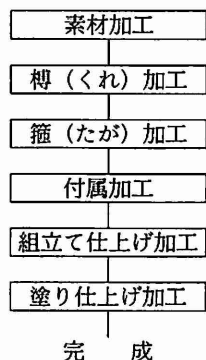 素材加工
榑（くれ）加工
箍（たが）加工
付属加工
組立て仕上げ加工
塗り仕上げ加工
完　成